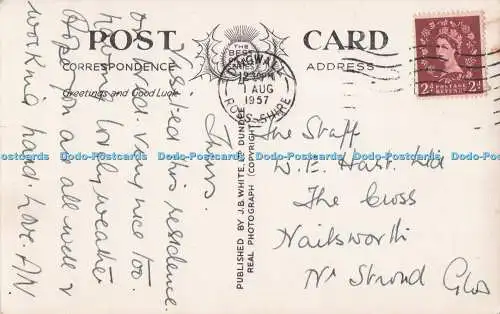 POST CARD
THE BEST
CORRESPONDENCE
ADDRESS
Greetings and Good Luck
DINGWALL
12 30PM
1 AUG
1957
ROSS-SHIRE
POSTAGE REVENUE
2D 2D
PUBLISHED BY J.B. WHITE, LTD DUNDEE
REAL PHOTOGRAPH (COPYRIGHT)
Visited this residence
on Wed. Very nice too.
Having lovely weather
Hope you are all well &
working hard. Love. AN.
The Staff
W. E. Hart. Ltd
The Cross
Nailsworth
Nr Stroud Glos
Dodo-Postcards Dodo-Postcards Dodo-Postcards Dodo-Postcards Dodo-Postcards